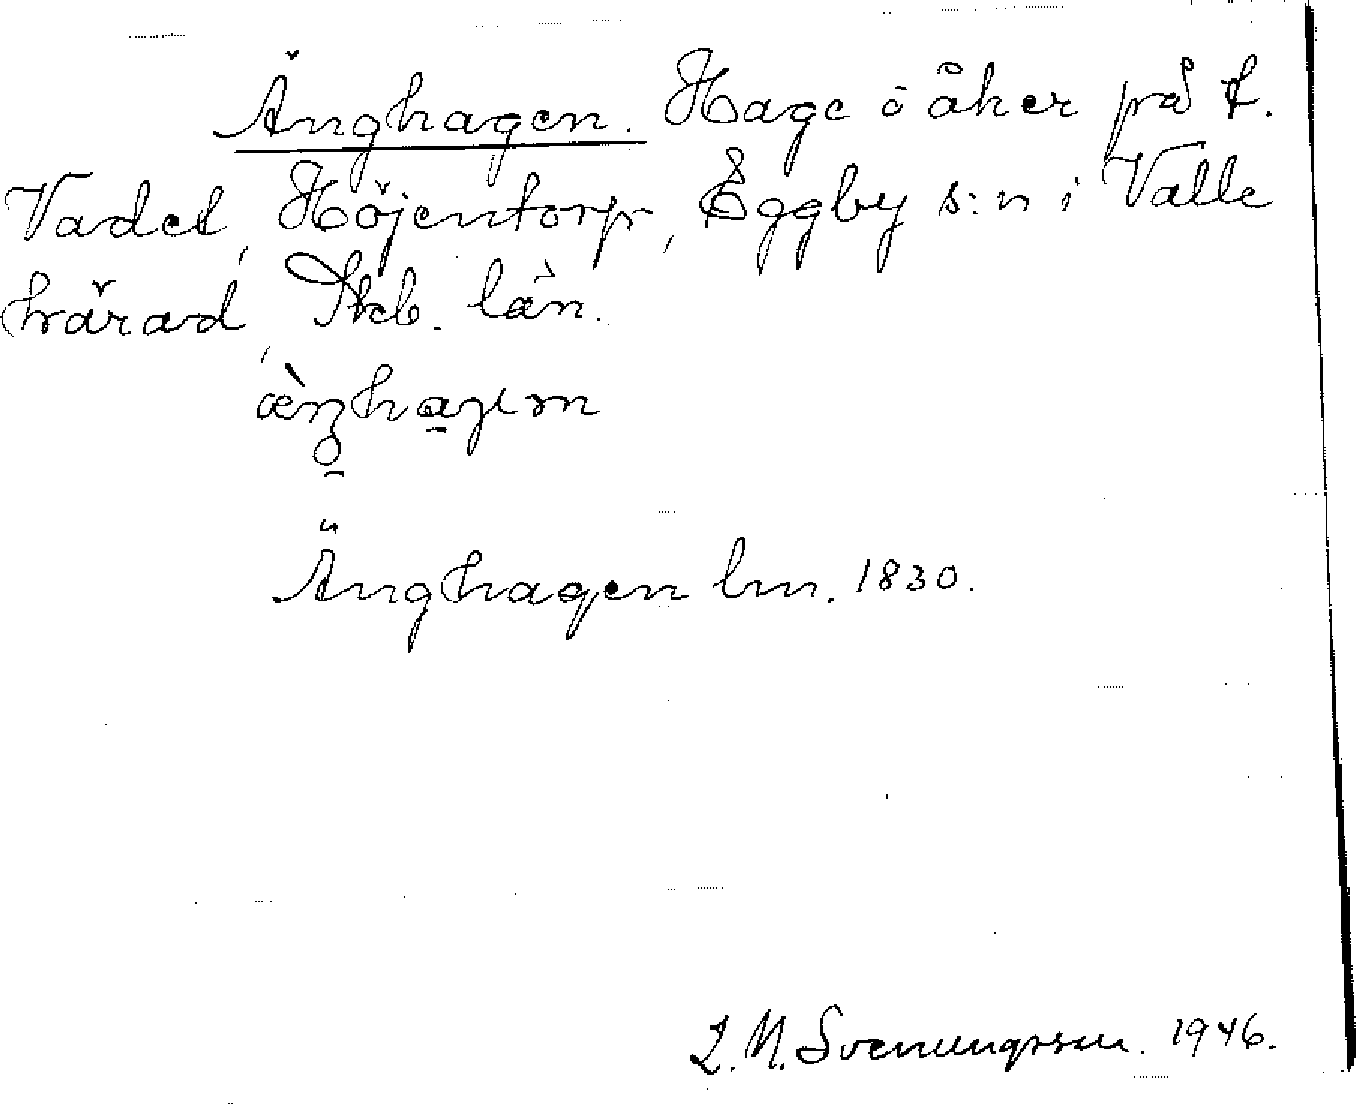 Änghagen. Hage o åker på t.
Vadet, Höjentorp, Eggby s:n i Valle
härad, Skb. län.
Änghagen lm. 1830.
L. M. Svenungsson. 1946.